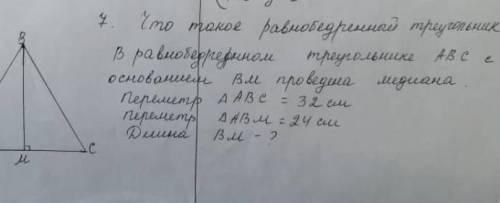 7. Что такое равнобедренной треугольник
В равнобедренном треугольнике ABC с
основанием BM проведена медиана.
Периметр ΔABC = 32 см
Периметр ΔABM = 24 см
Длина BM - ?
B
M
C